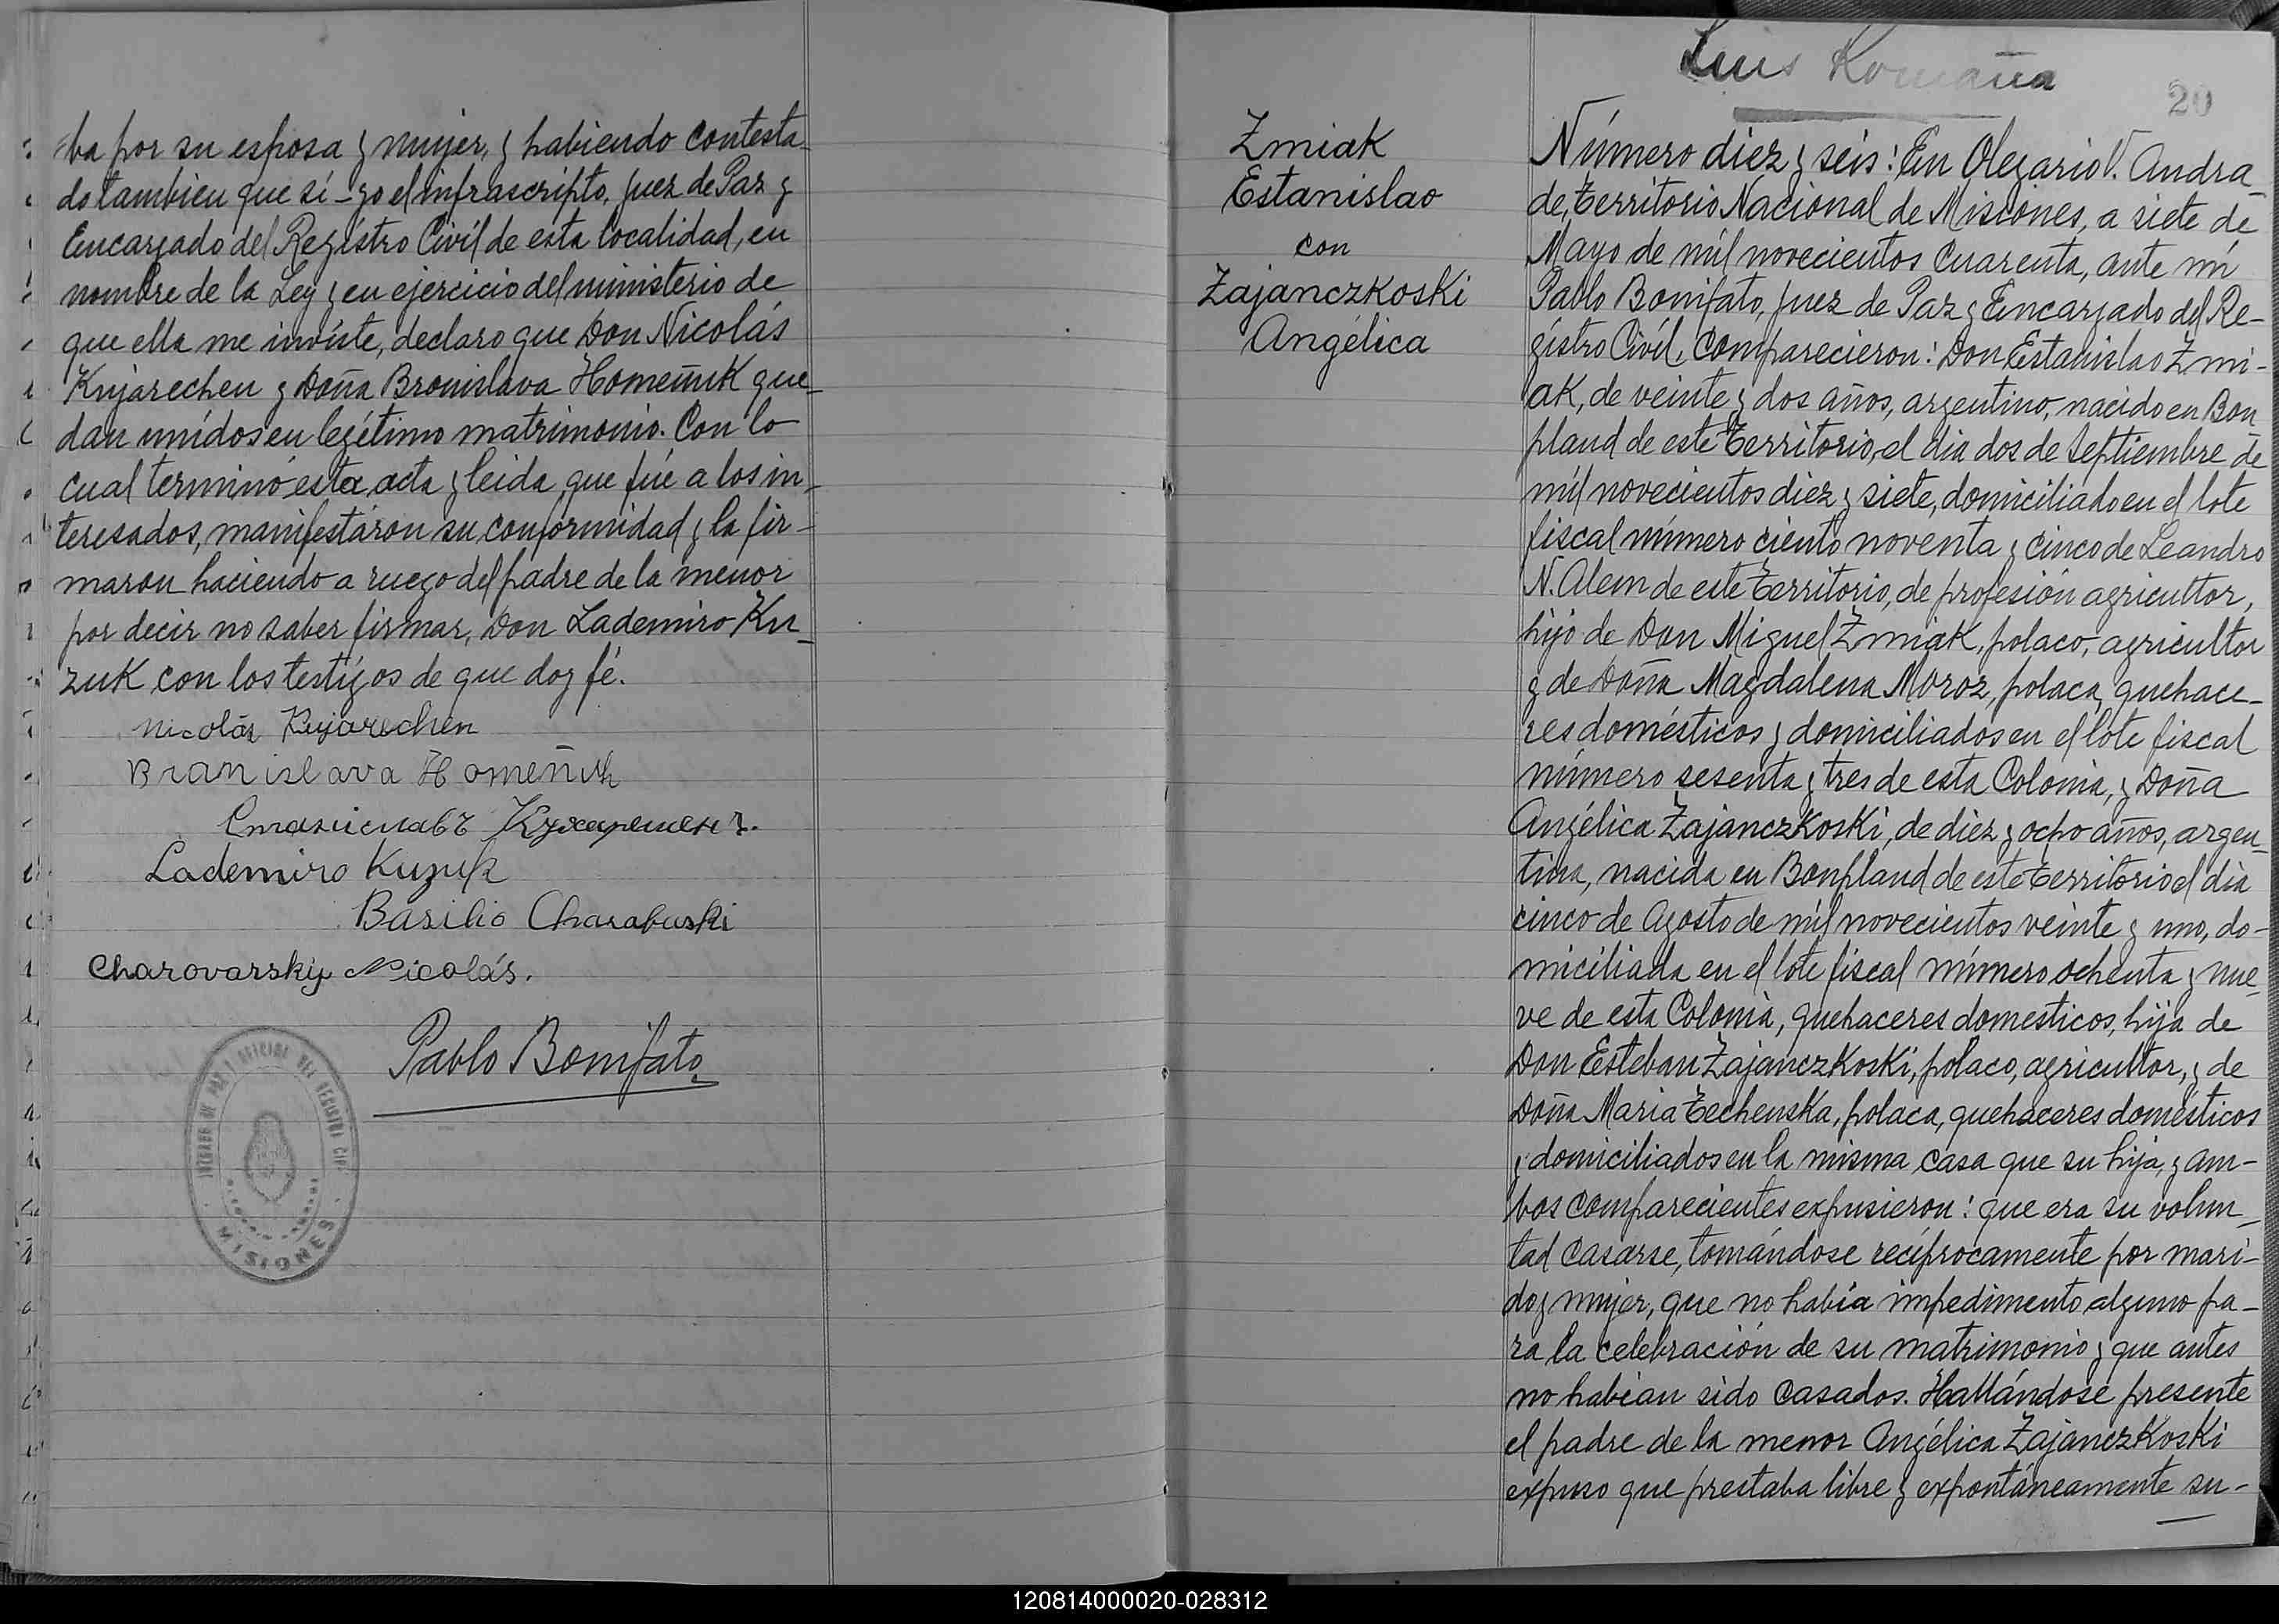 ba por su esposa y mujer, y habiendo contesta-
do tambien que sí - yo el infrascripto, Juez de Paz y
Encargado del Registro Civil de esta localidad, en
nombre de la Ley y en ejercicio del ministerio de
que ella me invíste, declaro que Don Nicolás
Kujarechen y Doña Bronislava Homeñuk que-
dan unídos en legítimo matrimonio. Con lo
cual terminó esta acta y leida que fué a los in-
teresados, manifestáron su conformidad y la fir-
maron haciendo a ruego del padre de la menor
por decir no saber firmar, Don Lademiro Ku-
zuk con los testígos de que doy fé.
Nicolás Kujarechen
Branislava Homeñuk
Lademiro Kuzuk
Basilio Charabuski
Charovarskiy Nicolás.
Pablo Bonifato
MISIONES
Luis Romaña
20
Zmiak
Estanislao
con
Zajanczkoski
Angélica
Número diez y seis: En Olegario V. Andra-
de, Territorio Nacional de Misiones, a siete de
Mayo de mil novecientos cuarenta, ante mí
Pablo Bonifato, Juez de Paz y Encargado del Re-
gistro Civíl, comparecieron: Don Estanislao Zmi-
ak, de veinte y dos años, argentino, nacido en Bon
pland de este Territorio, el dia dos de Septiembre de
mil novecientos diez y siete, domiciliado en el lote
fiscal número ciento noventa y cinco de Leandro
N. Alem de este Territorio, de profesión agricultor,
hijo de Don Miguel Zmiak, polaco, agricultor
y de Doña Magdalena Moroz, polaca, quehace-
res domésticos y domiciliados en el lote fiscal
número sesenta y tres de esta Colonia, y Doña
Angélica Zajanczkoski, de diez y ocho años, argen-
tina, nacida en Bonpland de este Territorio el dia
cinco de Agosto de mil novecientos veinte y uno, do-
miciliada en el lote fiscal número ochenta y nue-
ve de esta Colonia, quehaceres domesticos, hija de
Don Esteban Zajanczkoski, polaco, agricultor, y de
Doña Maria Techenska, polaca, quehaceres domésticos
y domiciliados en la misma casa que su hija, y am-
bos comparecientes expusieron: que era su volun-
tad casarse, tomándose recíprocamente por mari-
do y mujer, que no había impedimento alguno pa-
ra la celebración de su matrimonio y que antes
no habían sido casados. Hallándose presente
el padre de la menor Angélica Zajanczkoski
expuso que prestaba libre y expontáneamente su-
120814000020-028312